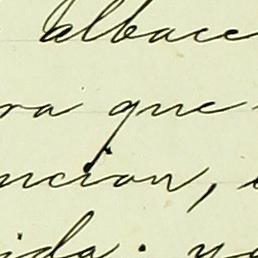 albace
ra que
ncion,
ida. y